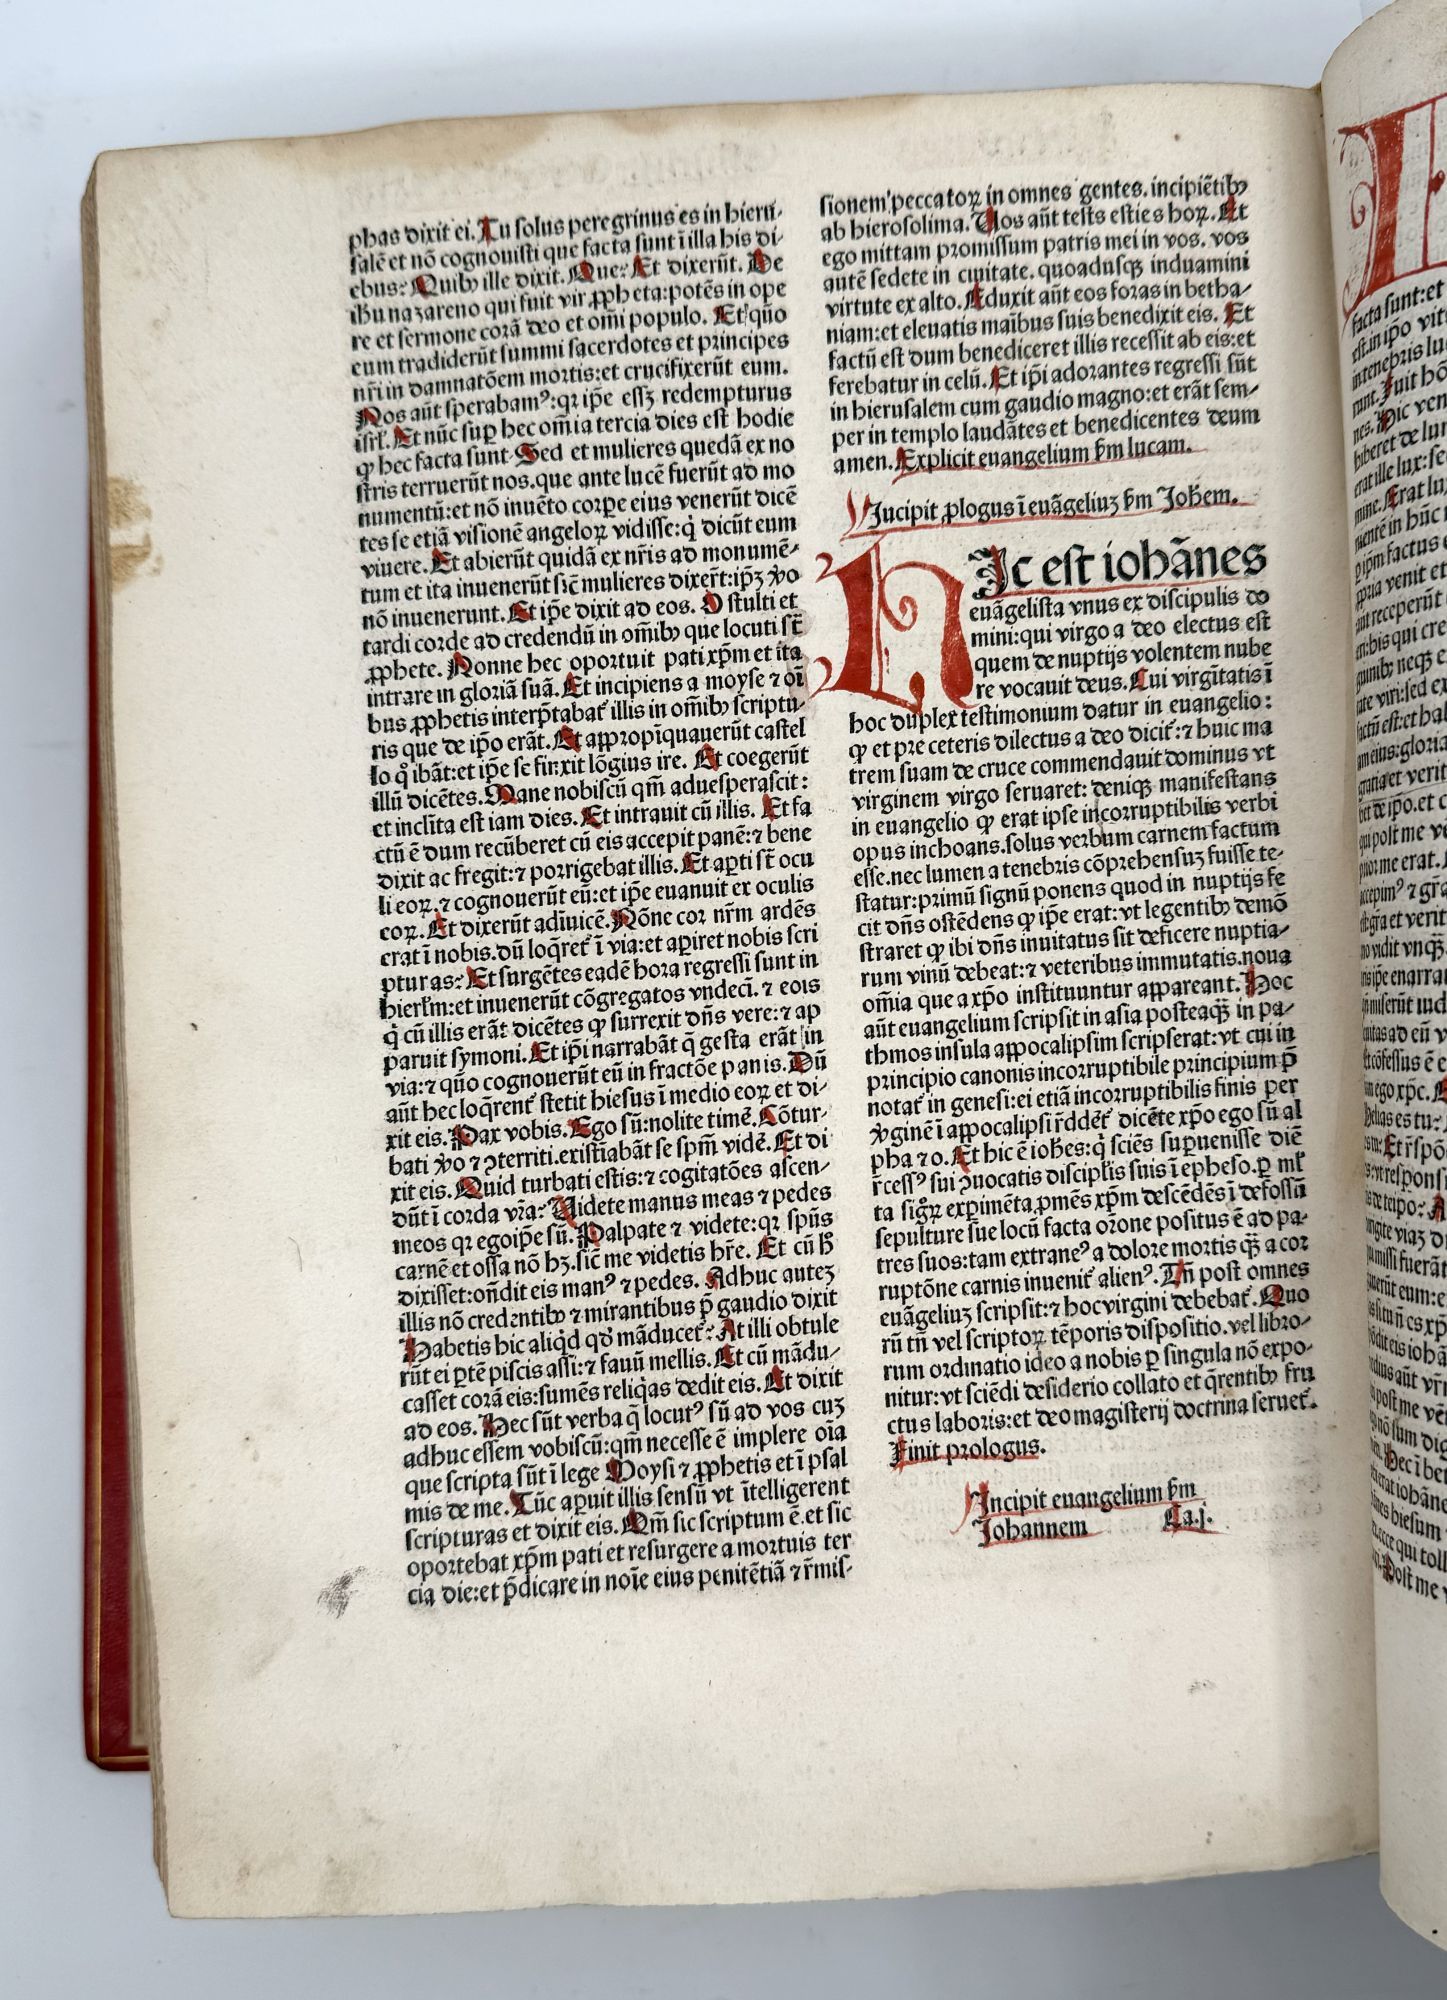 phas dixit ei. Tu solus peregrinus es in hieru-
salē et nō cognouisti que facta sunt ī illa his di-
ebus? Quibꝰ ille dixit. Que? Et dixerūt. De
ihū nazareno qui fuit vir ꝓpheta: potēs in ope
re et sermone corā deo et om̄i populo. Et qūo
eum tradiderūt summi sacerdotes et principes
nr̄i in damnatōem mortis: et crucifixerūt eum.
Nos aūt sperabamꝰ: qꝛ ip̄e essꝫ redempturus
isrl̄. Et nūc suꝑ hec om̄ia tercia dies est hodie
ꝙ hec facta sunt. Sed et mulieres quedā ex no
stris terruerūt nos. que ante lucē fuerūt ad mo
numentū: et nō inuēto corꝑe eius venerūt dicē
tes se etiā visionē angeloꝝ vidisse: q̇ dicūt eum
viuere. Et abierūt quidā ex nr̄is ad monumē-
tum et ita inuenerūt sic̄ mulieres dixer̄t: ip̄ꝫ v̊o
nō inuenerunt. Et ip̄e dixit ad eos. O stulti et
tardi corde ad credendū in om̄ibꝰ que locuti st̄
ꝓphete. Nonne hec oportuit pati xp̄m et ita
intrare in gloriā suā. Et incipiens a moyse ⁊ oī
bus ꝓphetis interp̄tabat̄ illis in om̄ibꝰ scriptu-
ris que de ip̄o erāt. Et appropiquauerūt castel
lo q̊ ibāt: et ip̄e se finxit lōgius ire. Et coegerūt
illū dicētes. Mane nobiscū qm̄ aduesperascit:
et inclīta est iam dies. Et intrauit cū illis. Et fa
ctū ē dum recūberet cū eis accepit panē: ⁊ bene
dixit ac fregit: ⁊ porrigebat illis. Et aꝑti st̄ ocu
li eoꝝ. ⁊ cognouerūt eū: et ip̄e euanuit ex oculis
eoꝝ. Et dixerūt adīuicē. Nōne cor nr̄m ardēs
erat ī nobis. dū loq̄ret̄ ī via: et aꝑiret nobis scri
pturas? Et surgētes eadē hora regressi sunt in
hierl̄m: et inuenerūt cōgregatos vndecī. ⁊ eois
q̇ cū illis erāt dicētes ꝙ surrexit dn̄s vere: ⁊ ap
paruit symoni. Et ip̄i narrabāt q̄ gesta erāt in
via: ⁊ qūo cognouerūt eū in fractōe panis. Dū
aūt hec loq̄rent̄ stetit hiesus ī medio eoꝝ et di-
xit eis. Pax vobis. Ego sū: nolite timē. Cōtur-
bati v̊o ⁊ ꝯterriti. existīabāt se spm̄ vidē. Et di
xit eis. Quid turbati estis: ⁊ cogitatōes ascen-
dūt ī corda vr̄a? Videte manus meas ⁊ pedes
meos qꝛ ego ip̄e sū. Palpate ⁊ videte: qꝛ spūs
carnē et ossa nō hꝫ. sic̄ me videtis hr̄e. Et cū h̊
dixisset: on̄dit eis manꝰ ⁊ pedes. Adhuc auteꝫ
illis nō credentibꝰ ⁊ mirantibus p̄ gaudio dixit
Habetis hic aliq̇d qd̊ māducet̄? At illi obtule
rūt ei ꝑtē piscis assi: ⁊ fauū mellis. Et cū mādu-
casset corā eis: sumēs reliq̇as dedit eis. Et dixit
ad eos. Hec sūt verba q̄ locutꝰ sū ad vos cuꝫ
adhuc essem vobiscū: qm̄ necesse ē implere oīa
que scripta sūt ī lege Moysi ⁊ ꝓphetis et ī psal
mis de me. Tūc aꝑuit illis sensū vt ītelligerent
scripturas et dixit eis. Qm̄ sic scriptum ē. et sic
oportebat xp̄m pati et resurgere a mortuis ter
cia die: et p̄dicare in noīe eius penitētiā ⁊ r̄mis-
sionem peccatoꝝ in omnes gentes. incipiētibꝰ
ab hierosolima. Vos aūt tests estis hoꝝ. Et
ego mittam promissum patris mei in vos. vos
autē sedete in ciuitate. quoadusqꝫ induamini
virtute ex alto. Eduxit aūt eos foras in betha-
niam: et eleuatis maībus suis benedixit eis. Et
factū est dum benediceret illis recessit ab eis: et
ferebatur in celū. Et ip̄i adorantes regressi sūt
in hierusalem cum gaudio magno: et erāt sem-
per in templo laudātes et benedicentes deum
amen. Explicit euangelium ẜm lucam.
Incipit ꝓlogus ī euāgeliuꝫ ẜm Joh̄em.
HIc est iohānes
euāgelista vnus ex discipulis do
mini: qui virgo a deo electus est
quem de nuptijs volentem nube
re vocauit deus. Cui virgītatis ī
hoc duplex testimonium datur in euangelio:
ꝙ et pre ceteris dilectus a deo dicit̄: ⁊ huic ma
trem suam de cruce commendauit dominus vt
virginem virgo seruaret: deniqꝫ manifestans
in euangelio ꝙ erat ipse incorruptibilis verbi
opus inchoans. solus verbum carnem factum
esse. nec lumen a tenebris cōprehensuꝫ fuisse te-
statur: primū signū ponens quod in nuptijs fe
cit dn̄s ostēdens ꝙ ip̄e erat: vt legentibꝰ demō
straret ꝙ ibi dn̄s inuitatus sit deficere nuptia-
rum vinū debeat: ⁊ veteribus immutatis. noua
om̄ia que a xp̄o instituuntur appareant. Hoc
aūt euangelium scripsit in asia posteaqꝫ in pa-
thmos insula appocalipsim scripserat: vt cui in
principio canonis incorruptibile principium p̄
notat̄ in genesi: ei etiā incorruptibilis finis per
v̊ginē ī appocalipsi r̄ddēt̄ dicēte xp̄o ego sū al
pha ⁊ o. Et hic ē ioh̄es: q̇ sciēs suꝑuenisse diē
r̄cessꝰ sui ꝯuocatis disciplis suis ī epheso. ꝑ ml̄
ta sigꝝ exꝑimēta ꝓmēs xp̄m descēdēs ī defossū
sepulture sue locū facta or̄one positus ē ad pa-
tres suos: tam extraneꝰ a dolore mortis qꝫ a cor
ruptōne carnis inuenit̄ alienꝰ. Tn̄ post omnes
euāgeliuꝫ scripsit: ⁊ hoc virgini debebat̄. Quo
rū tn̄ vel scriptoꝝ tēporis dispositio. vel libro-
rum ordinatio ideo a nobis ꝑ singula nō expo-
nitur: vt sciēdi desiderio collato et q̄rentibꝰ fru
ctus laboris: et deo magisterij doctrina seruet̄.
Finit prologus.
Incipit euangelium ẜm
Johannem Ca. j.
facta sunt: et
est. in ip̄o vit
in tenebris lu
runt. Fuit ho